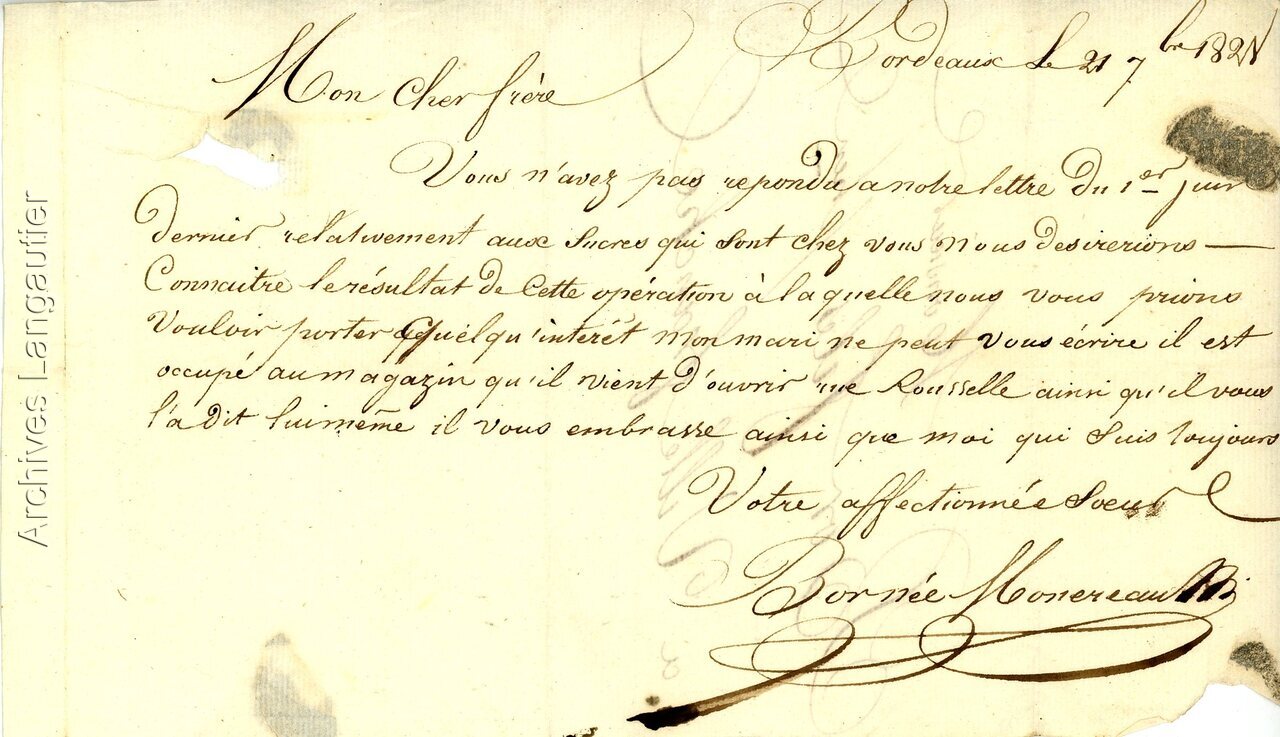 Bordeaux le 21 7bre 182
Mon cher frère
Vous n'avez pas repondu a notre lettre du 1er juin
dernier relativement aux sucres qui sont chez vous nous desirerions —
Connaitre le résultat de cette opération à laquelle nous vous prions
vouloir porter quelqu'interêt mon mari ne peut vous écrire il est
occupé au magazin qu'il vient d'ouvrir rue Rousselle ainsi qu'il vous
l'a dit lui même il vous embrasse ainsi que moi qui suis toujours
Votre affectionnée soeur
Bornée Monereau
Archives Langautier